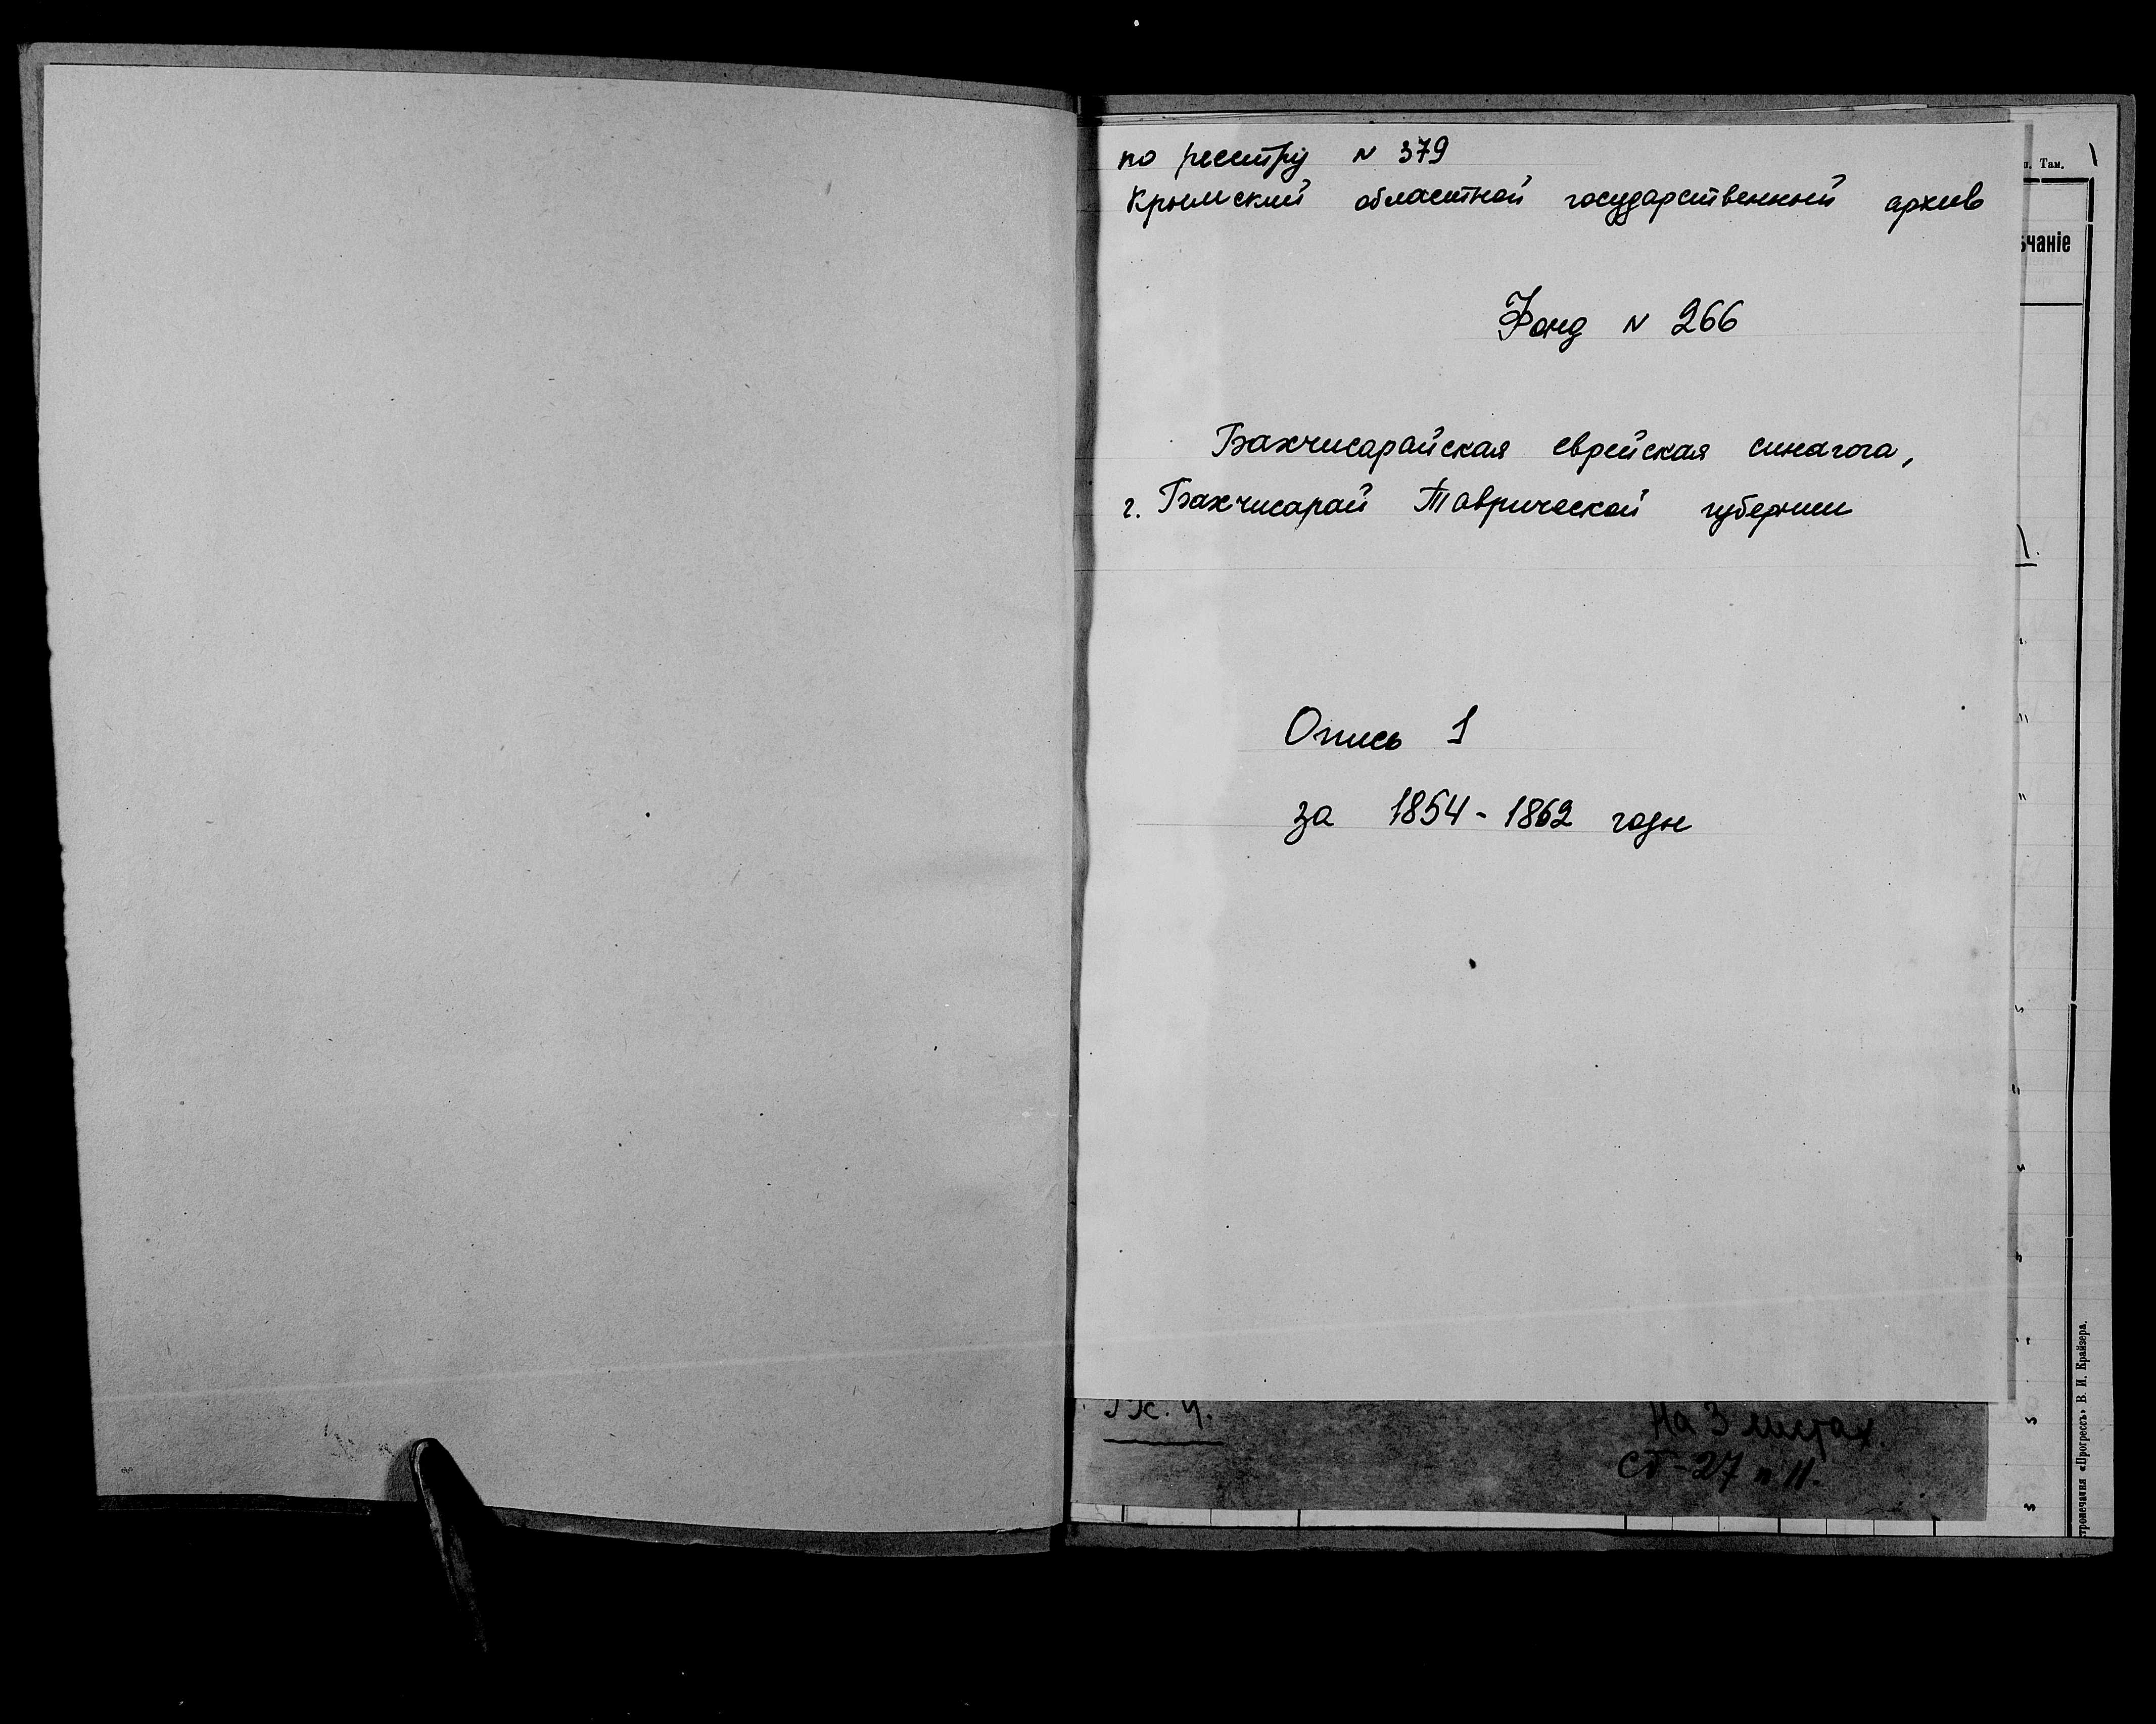 по реестру № 379
Крымский областной государственный архив
Фонд № 266
Бахчисарайская еврейская синагога,
г. Бахчисарай Таврической губернии
Опись 1
за 1854-1862 годы
На 3 листах.
Там.
ѣчаніе
«Прогрессъ» В. И. Крайзера.